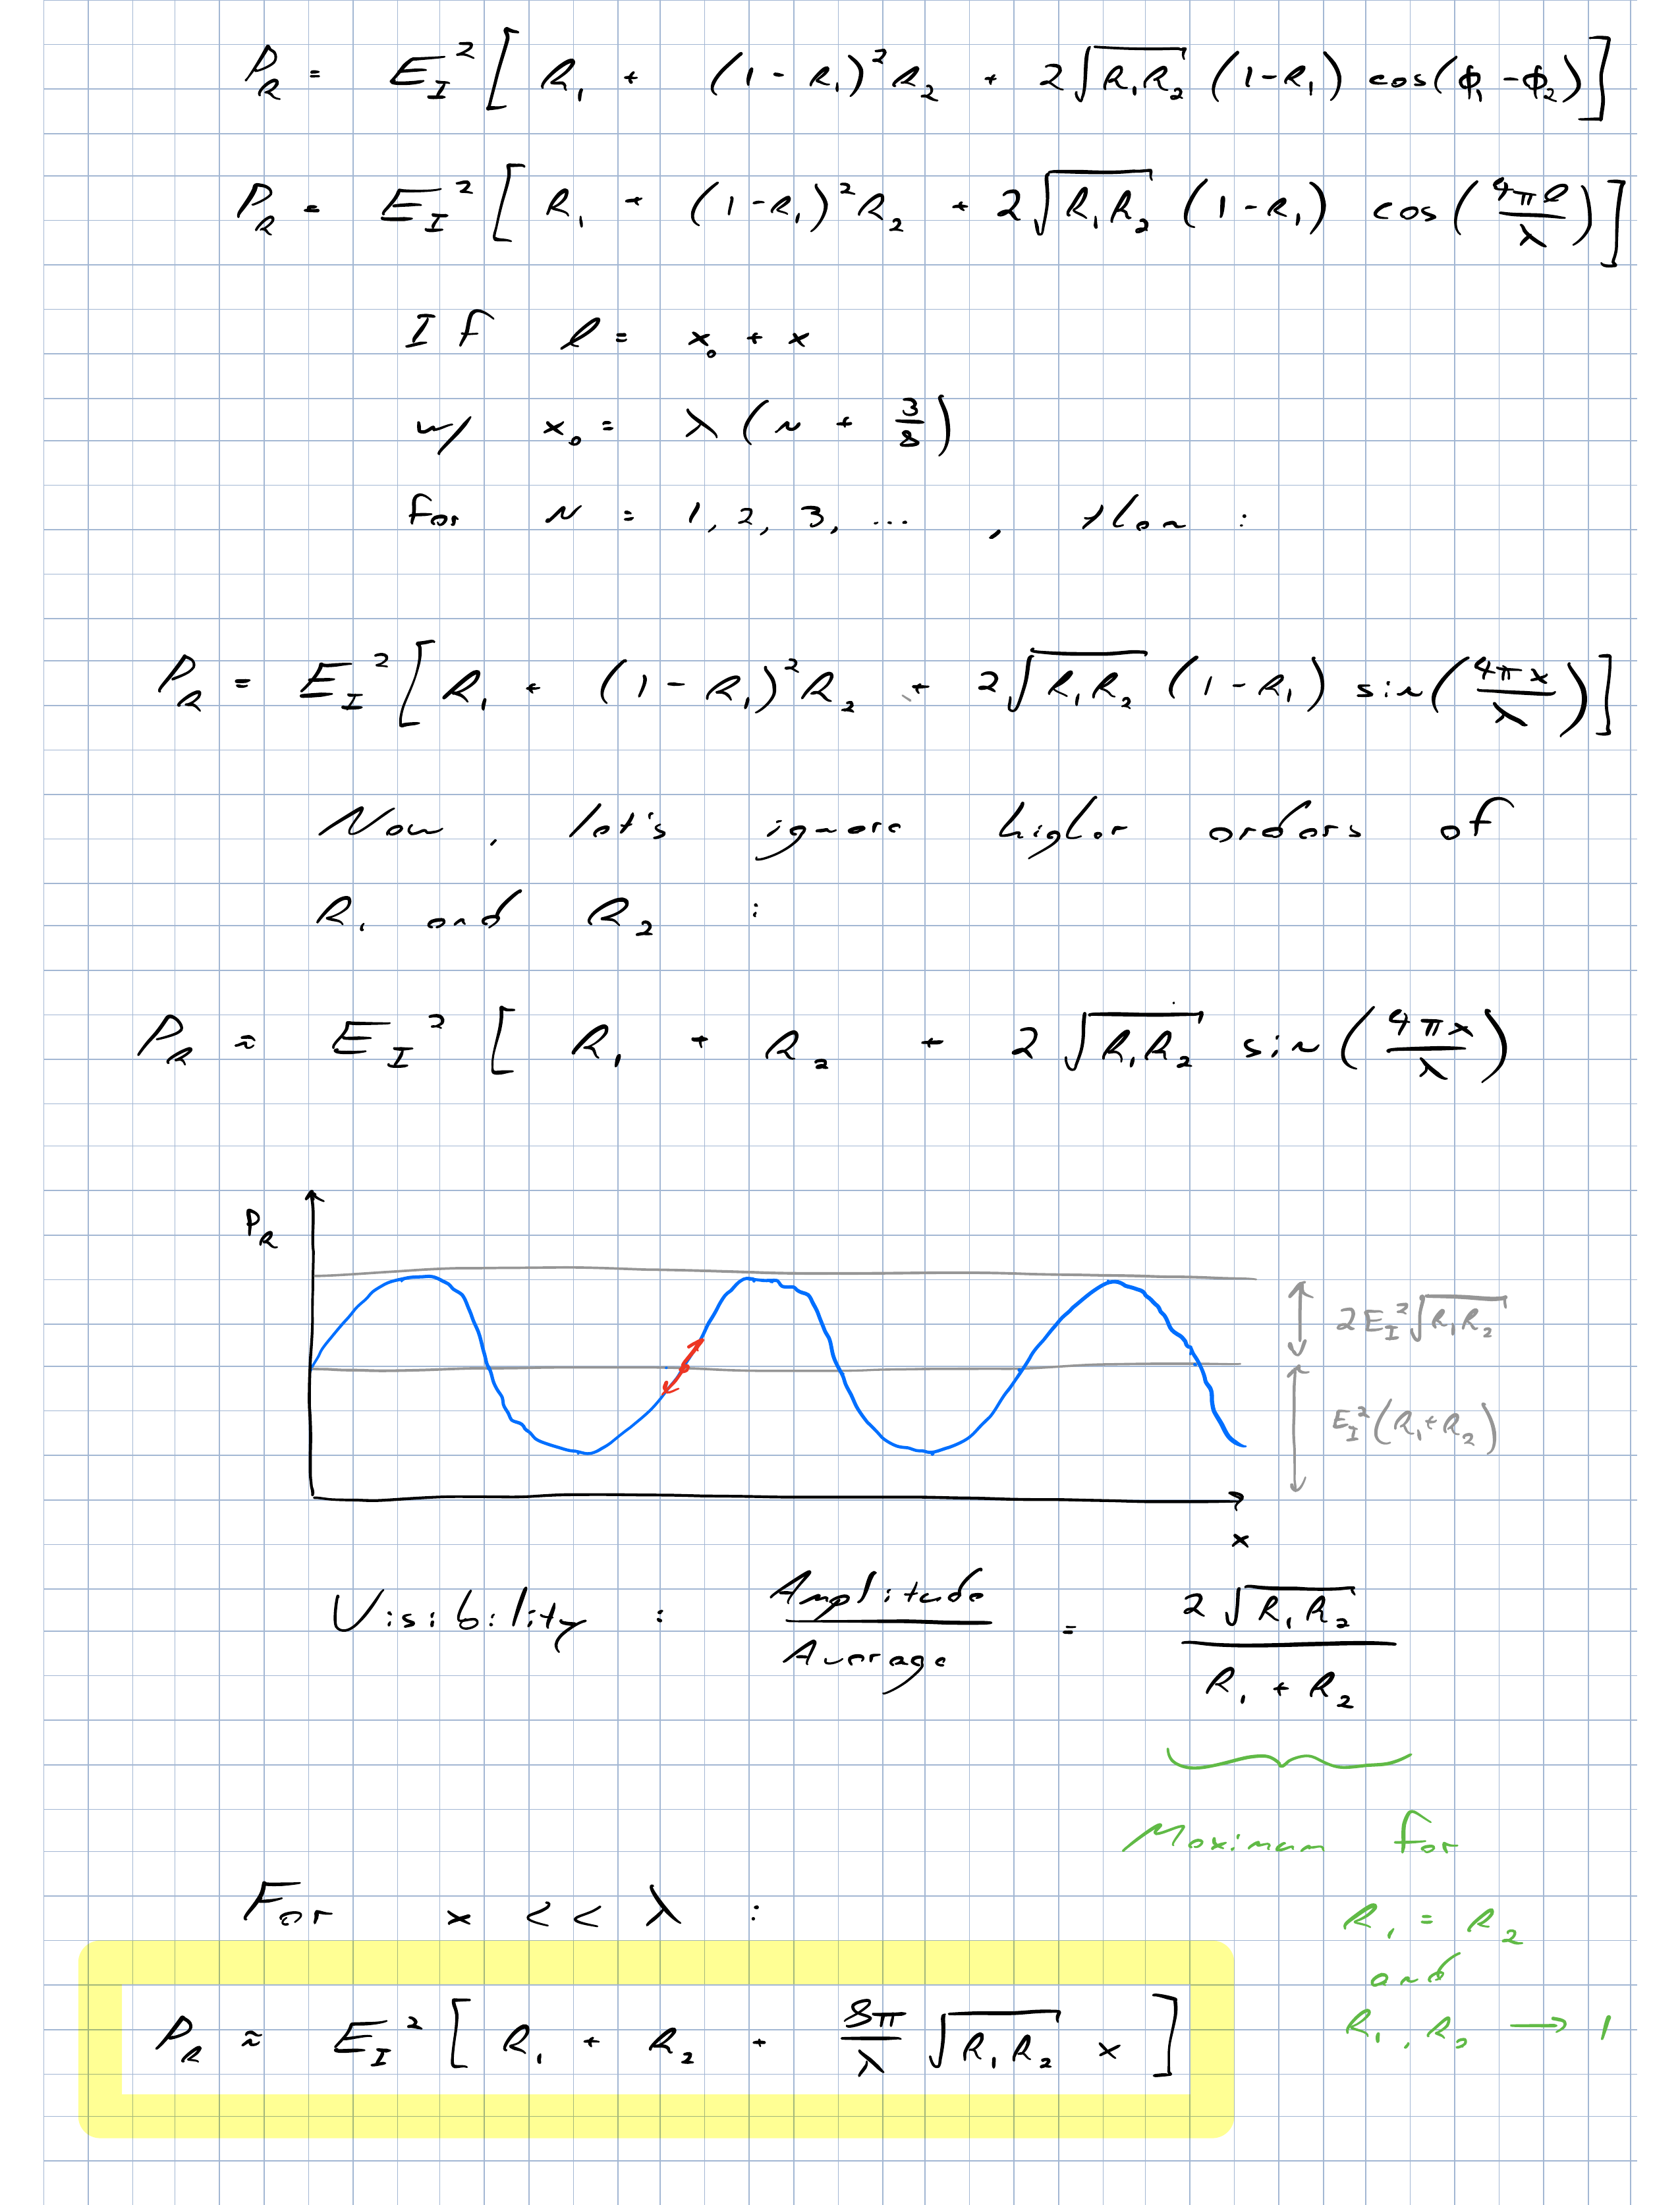 P_R = E_I² [ R₁ + (1 - R₁)² R₂ + 2√(R₁R₂) (1-R₁) cos(ϕ₁ - ϕ₂) ]
P_R = E_I² [ R₁ + (1-R₁)² R₂ + 2√(R₁R₂) (1-R₁) cos(4πl/λ) ]
If l = x₀ + x
w/ x₀ = λ(N + 3/8)
for N = 1, 2, 3, ... , then :
P_R = E_I² [ R₁ + (1 - R₁)² R₂ + 2√(R₁R₂) (1 - R₁) sin(4πx/λ) ]
Now, let's ignore higher orders of
R₁ and R₂ :
P_R ≈ E_I² [ R₁ + R₂ + 2√(R₁R₂) sin(4πx/λ)
P_R
2E_I²√(R₁R₂)
E_I²(R₁+R₂)
x
Visibility : Amplitude/Average = 2√(R₁R₂)/(R₁ + R₂)
Maximum for
R₁ = R₂
and
R₁, R₂ → 1
For x << λ :
P_R ≈ E_I² [ R₁ + R₂ + 8π/λ √(R₁R₂) x ]